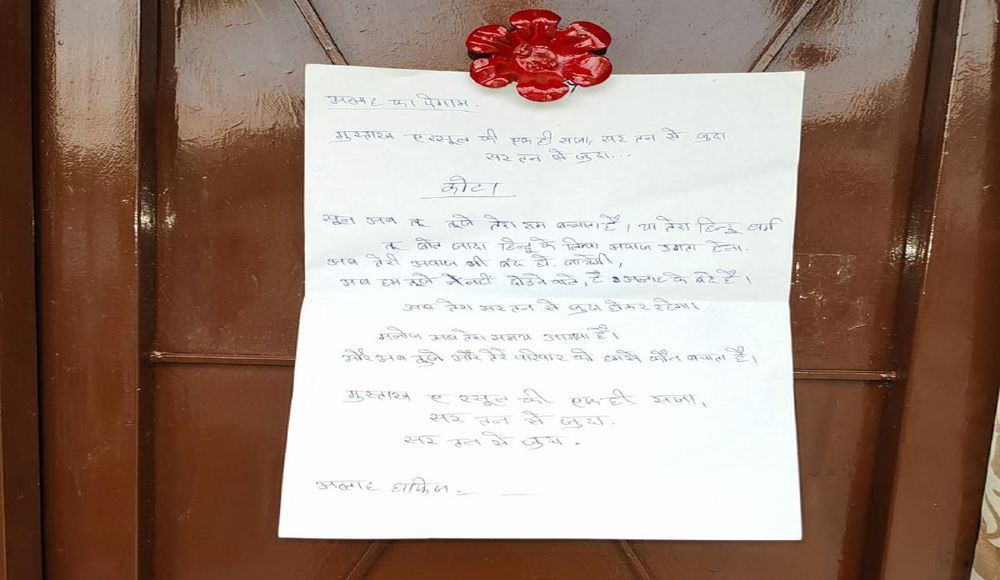 अल्लाह का पेगाम.
गुस्ताख ए रसूल की एक ही सजा, सर तन से जुदा
सर तन से जुदा...
कोटा
सुन अब तू तुझे तेरा राम बचाता है। या तेरा हिन्दू धर्म
तू बोत जादा हिन्दू के लिया अवाज उगता हेना.
अब तेरी अवाज भी बंद हो जायेगी,
अब हम तुझे नही छोडने वाले, है अल्लाह के बंदे है।
अब तेरा सर तन से जुदा होकर रहेगा।
मनोज अब तेरा समय आगया है।
और अब तुझे और तेरे परिवार को हमसे कौन बचाता है।
गुस्ताख ए रसूल की एक ही सजा,
सर तन से जुदा.
सर तन से जुदा.
अल्लाह हाफिज